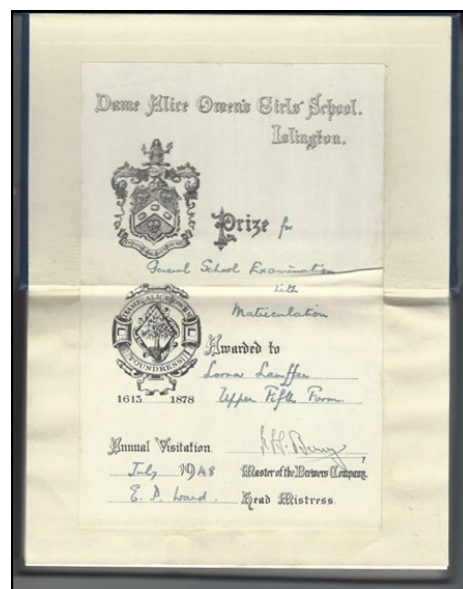 Dame Alice Owen's Girls' School.
Islington.
Prize for
General School Examination
with
Matriculation
DAME ALICE OWEN
FOUNDRESS
1613 1878
Awarded to
Lorna Lauffer
Upper Fifth Form.
Annual Visitation.
July 1948 Master of the Brewers Company.
E. P. Ward. Head Mistress.